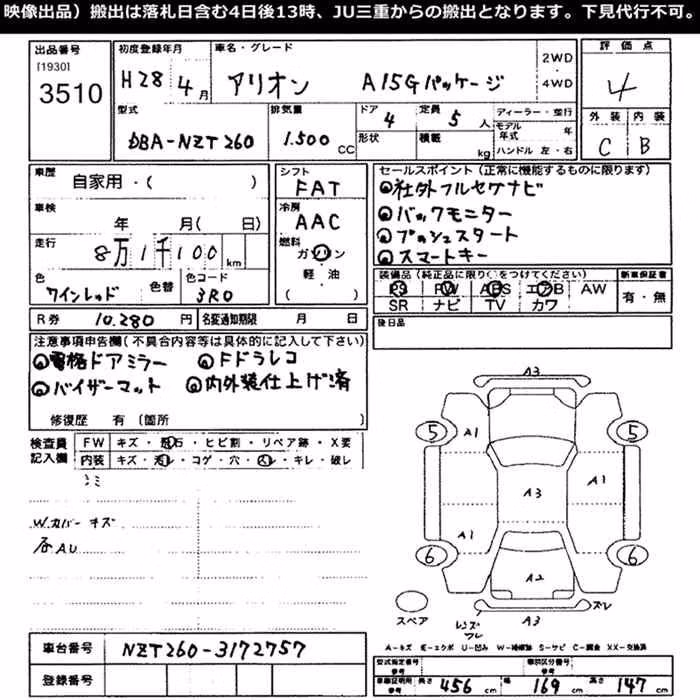 映像出品）搬出は落札日含む4日後13時、JU三重からの搬出となります。下見代行不可。
出品番号
[1930]
3510
初度登録年月
H28年 4月
車名・グレード
アリオン A15Gパッケージ
2WD
・
4WD
評価点
4
外装 内装
C B
型式
DBA-NZT260
排気量
1.500 CC
ドア
4
形状
定員
5人
積載
kg
ディーラー・並行
モデル年式 年
ハンドル 左・右
車歴
自家用・( )
車検
年 月( 日)
走行
8万1千100km
色
ワインレッド
色替
色コード
3R0
シフト
FAT
冷房
AAC
燃料
ガソリン
軽・油
( )
セールスポイント(正常に機能するものに限ります)
社外フルセグナビ
バックモニター
プッシュスタート
スマートキー
装備品(純正品に限り○をつけてください)
PS PW ABS エアB AW
SR ナビ TV カワ
新車保証書
有・無
後日品
R券 10.280円
名変通知期限 月 日
注意事項申告欄(不具合内容等は具体的に記入して下さい)
電格ドアミラー
Fドラレコ
バイザーマット
内外装仕上げ済
修復歴 有(箇所 )
検査員記入欄
FW キズ・飛石・ヒビ割・リペア跡・X要
内装 キズ・汚レ・コゲ・穴・スレ・キレ・破レ
シミ
W.カバー キズ
各AU
A3
5
A1
5
A3
A1
A1
6
6
A2
スペア
レンズ
ワレ
A3
ズレ
車台番号
NZT260-3172757
登録番号
型式指定番号
参考
類別区分番号
参考
車庫証明用
参考
長さ 456 cm 幅 169 cm 高さ 147 cm